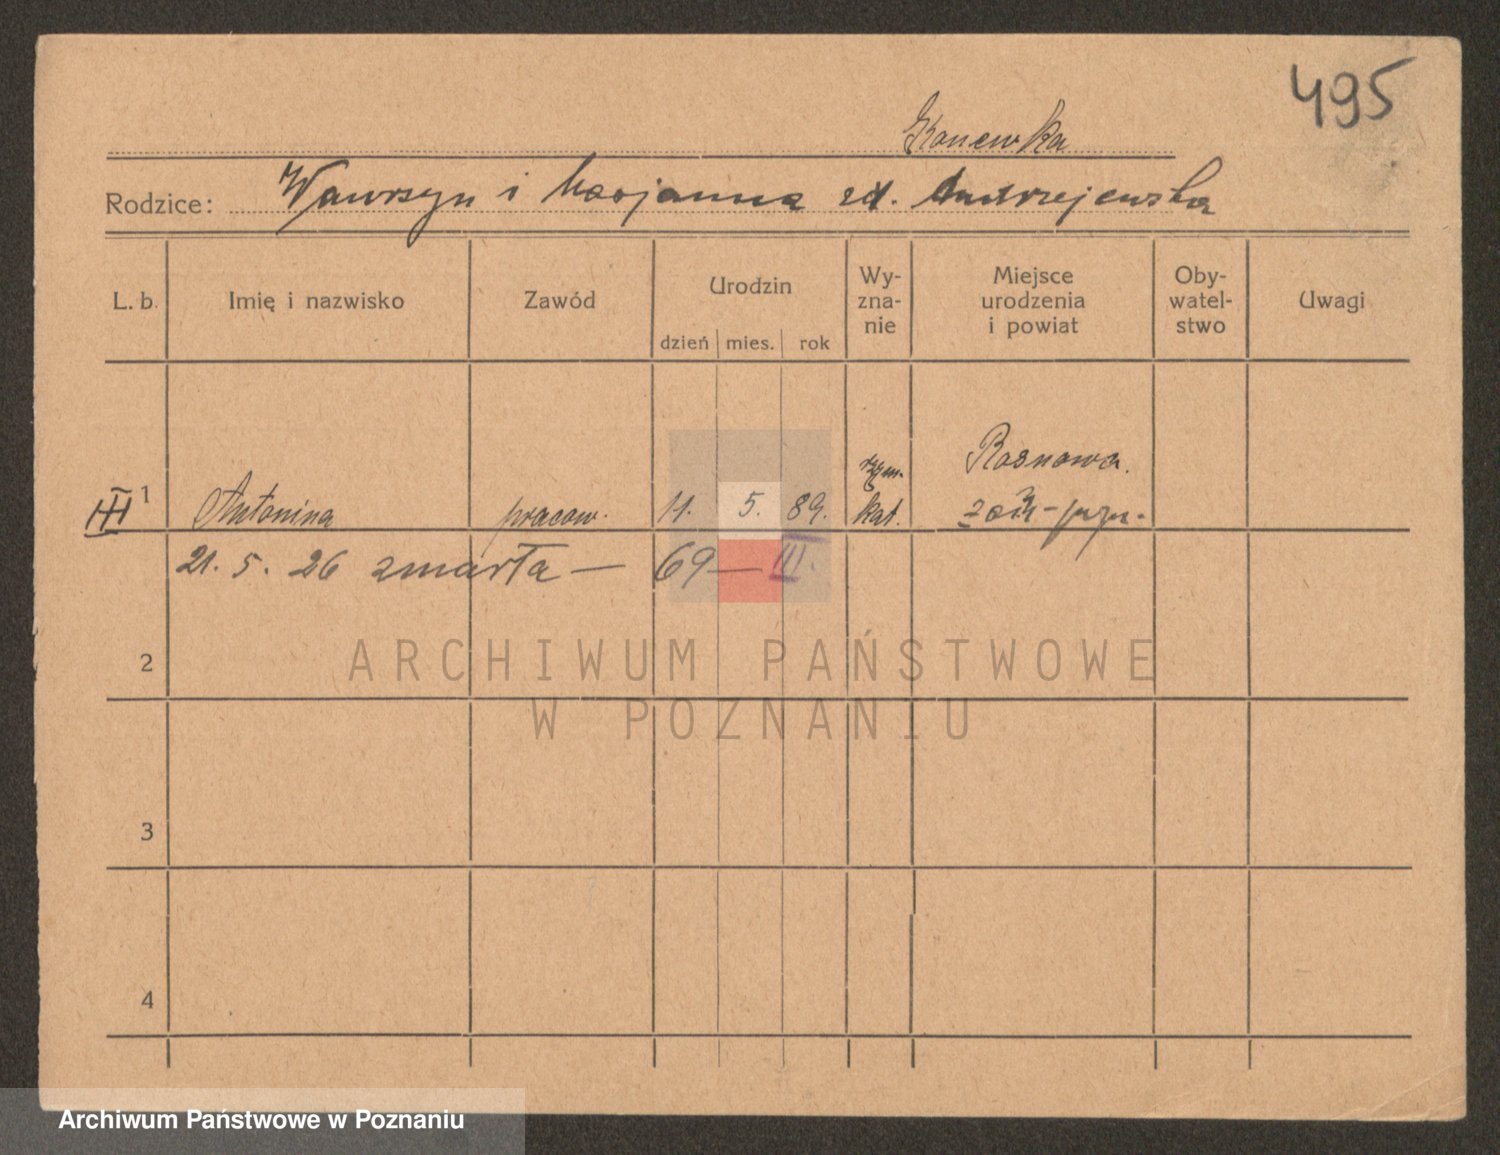 495
Kanewka
Rodzice: Wawrzyn i Marjanna zd. Andrzejewska
L. b. Imię i nazwisko Zawód Urodzin dzień mies. rok Wy-zna-nie Miejsce urodzenia i powiat Oby-watel-stwo Uwagi
Rosnowa.
III 1 Antonina pracow. 11. 5. 89. rzym. kat.
21. 5. 26 zmarła — 69 — III.
2
ARCHIWUM PAŃSTWOWE
W POZNANIU
3
4
Archiwum Państwowe w Poznaniu